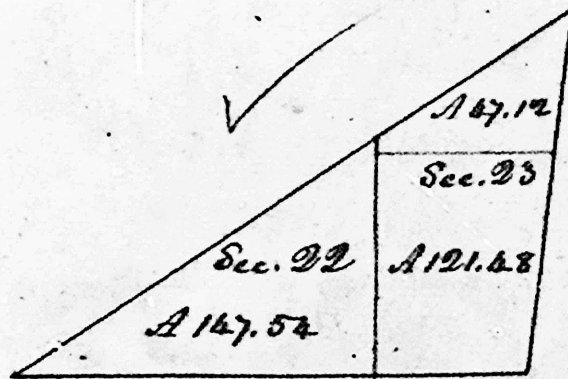 A 47.12
Sec. 23
Sec. 22
A 121.48
A 147.54